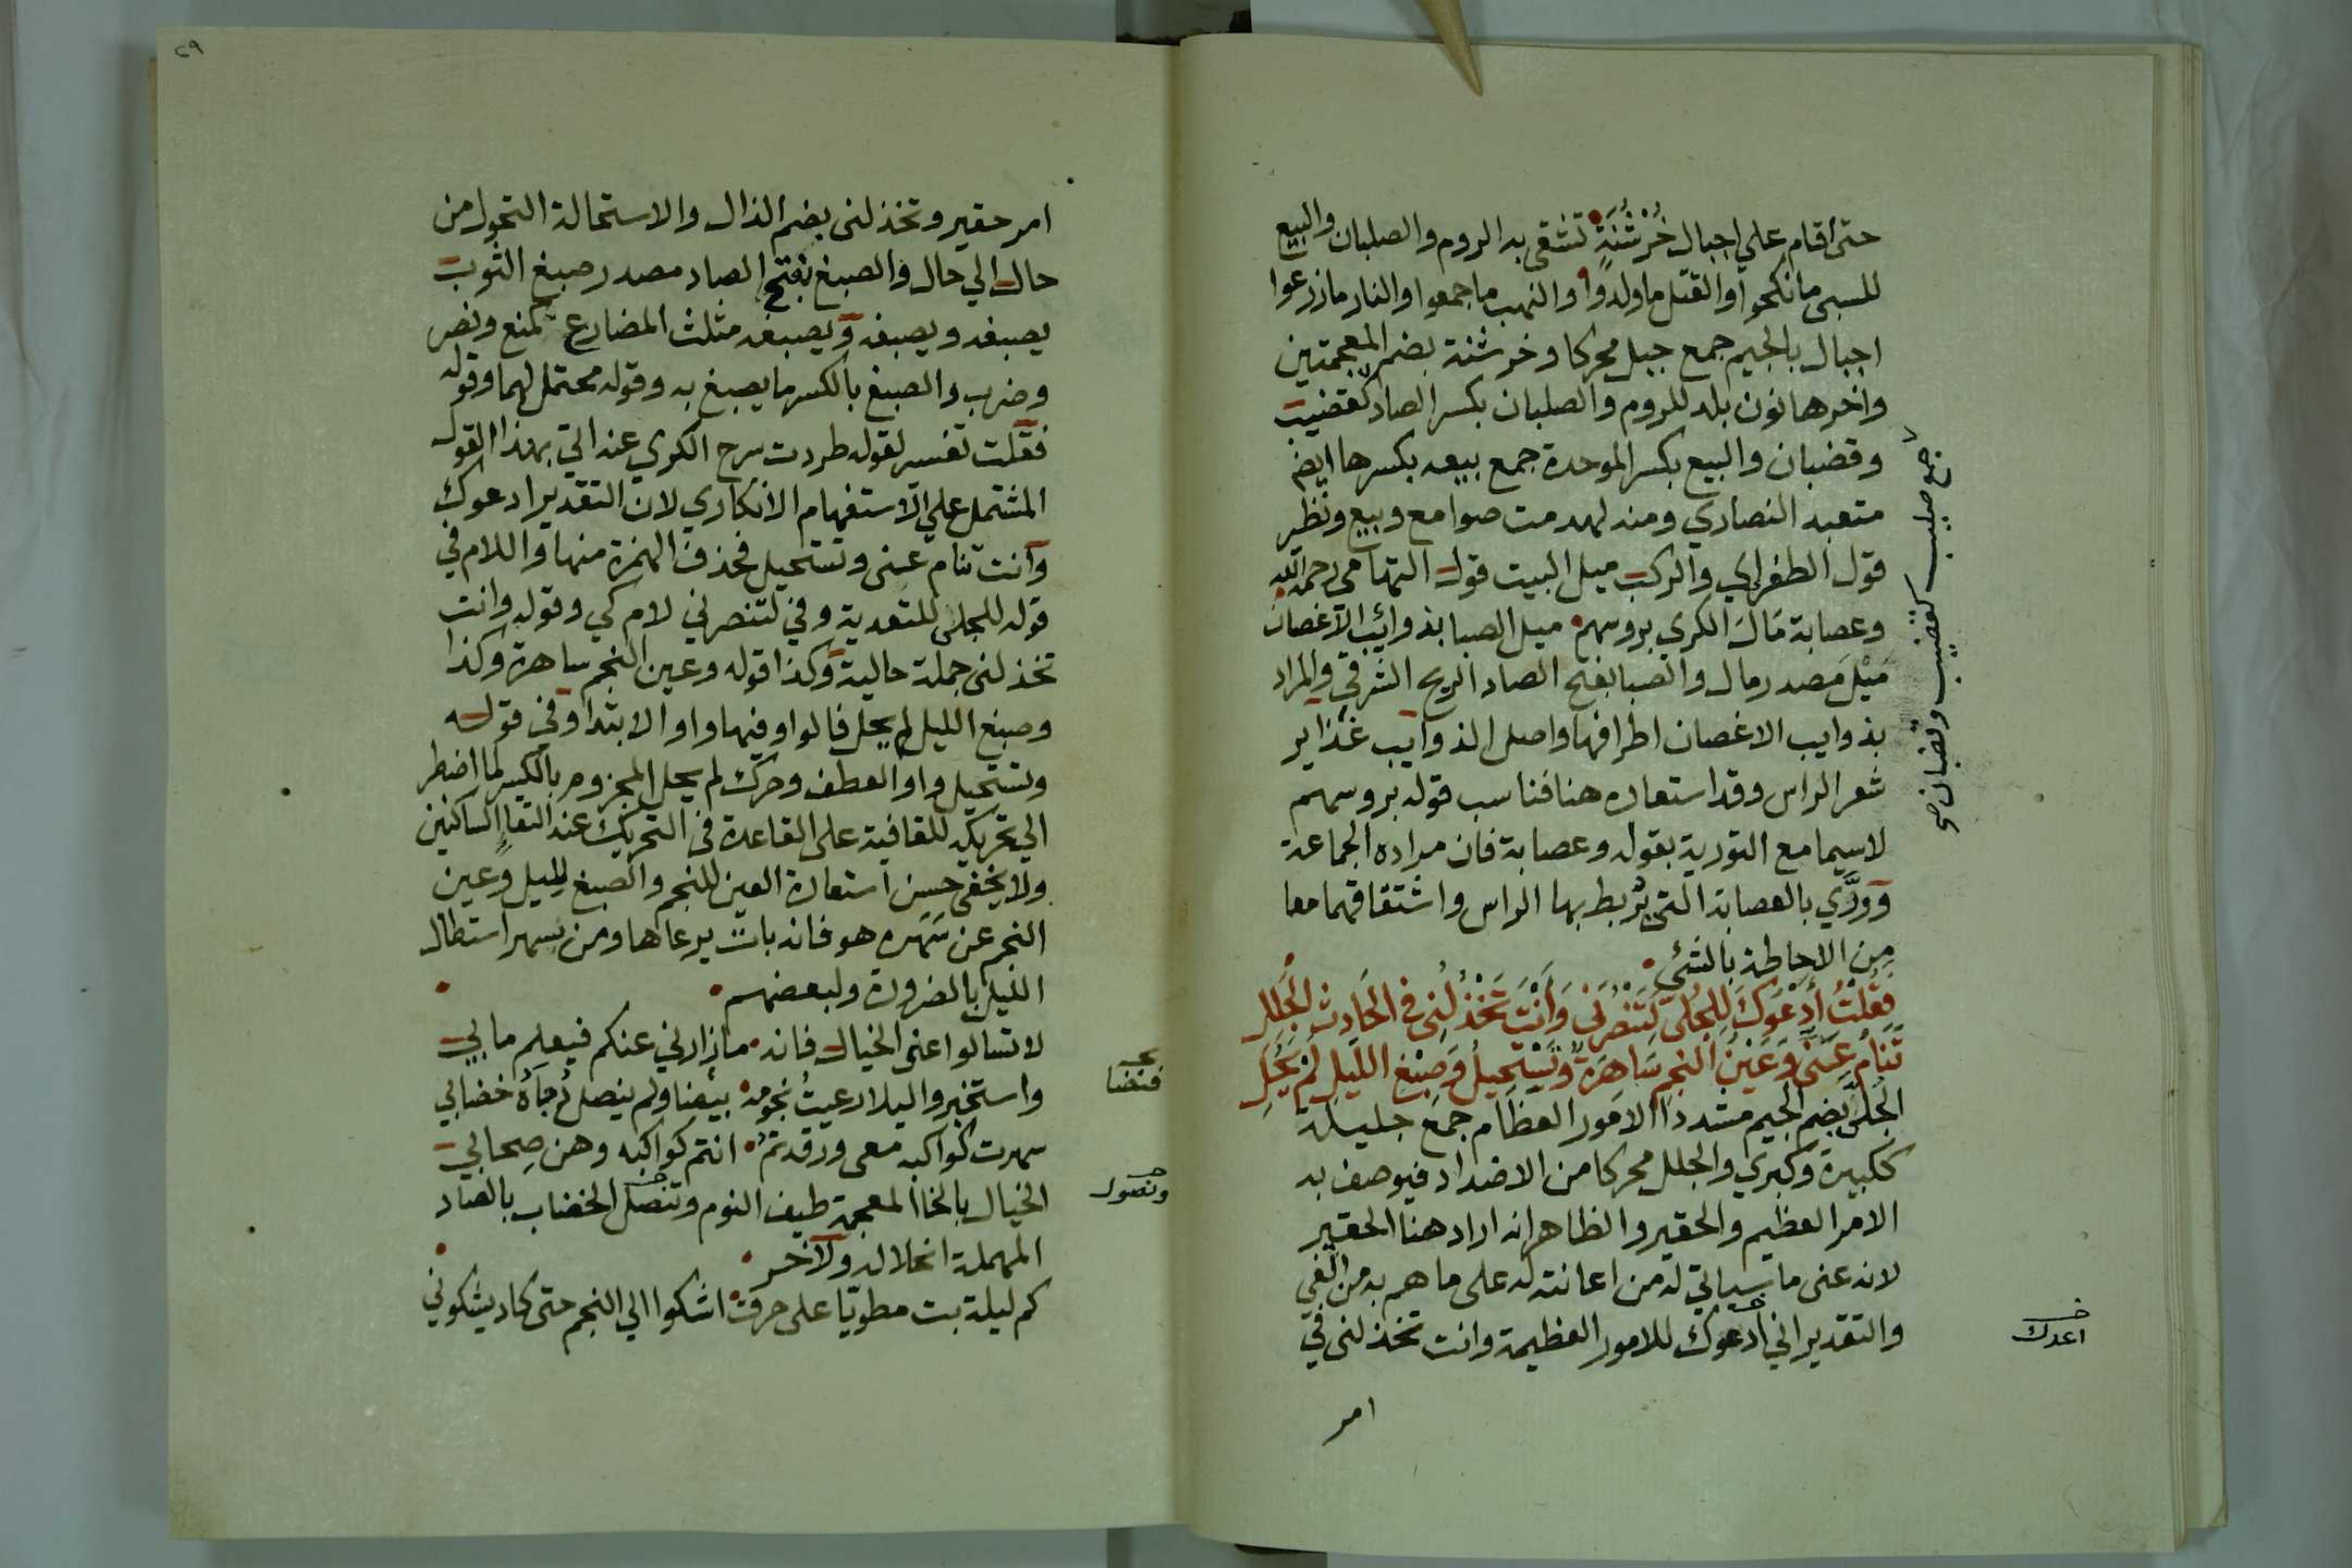 حتى أقام علي اجبال خُرْشُنَةٍ تشقى به الروم والصلبان والبيع
للسبى مانكحوا والقتل ماولدوا والنهب ماجمعوا والنار مازرعوا
اجبال بالجيم جمع جبل محركا وخرشنة بضم المعجمتين
واخرها نون بلد للروم والصلبان بكسر الصاد كقضيب
وقضبان والبيع بكسر الموحدة جمع بيعه بكسرها ايضا
متعبد النصاري ومنه لهدمت صوامع وبيع ونظر
قول الطغراي والركب ميل البيت قول التهامى رحمه الله
وعصابة مَالَ الكري بروسهم ميل الصبا بذوائب الاغصان
مَيْلَ مصدر مال والصبا بفتح الصاد الريح الشرقي والمراد
بذوايب الاغصان اطرافها واصل الذوايب غذاير
شعر الراس وقد استعاره هنا فناسب قوله بروسهم
لاسيما مع التورية بقوله وعصابة فان مراده الجماعة
وورَّي بالعصابة التى يُربط بها الراس واشتقاقهما معا
من الاحاطة بالشئ
فَقُلْتُ أَدْعُوكَ لِلجُلَّى لِتَنْصُرَنِي وَأَنْتَ تَخْذُلُنِى فى الحَادِثِ الجَلَلِ
تَنَامُ عَنِّى وَعَيْنُ النجمِ سَاهَرَةٌ وَتَسْتَحِيلُ وَصِبْغ اللّيلِ لَمْ يَحُلِ
الجُلَّى بضم الجيم مشددا الامور العظام جمع جليلة
ككبيرة وكبري والجلل محركا من الاضداد فيوصف به
الامر العظيم والحقير والظاهر انه اراد هنا الحقير
لانه عنى ماسياتي له من اعانته له على ماهم به من الغي
والتقدير اني ادعوك للامور العظيمة وانت تخذلنى في
امر
جمع صليب كقضيب وقضبان صح
اعدك
٢٩
امر حقير وتخذلنى بضم الذال والاستحالة التحول من
حال الي حال والصبغ بفتح الصاد مصدر صبغ الثوب
يصبغه ويصبغه ويصبغه مثلث المضارع كمنع ونصر
وضرب والصبغ بالكسر مايصبغ به وقوله محتمل لهما وقوله
فقلت تفسير لقوله طردت سرح الكري عنه اي بهذا القول
المشتمل علي الاستفهام الانكاري لان التقدير ادعوك
وانت تنام عنى وتستحيل فحذف الهمزة منها واللام في
قوله للجلى للتعدية وفي لتنصرني لام كي وقوله وانت
تخذلنى جملة حالية وكذا قوله وعين النجم ساهرة وكذا
وصبغ الليل لم يحل فالواو فيها واو الابتدا وفي قوله
وتستحيل واو العطف وحرك لم يحل المجزوم بالكسر لما اضطر
الي تحريكه للقافية على القاعدة فى التحريك عند التقاء الساكنين
ولا يخفى حسن استعارة العين للنجم والصبغ لليل وعين
النجم عن سَهَره هو فانه بات يرعاها ومن يسهر استطال
الليل بالضرورة ولبعضهم
لاتسالوا عنى الخيال فانه مازارني عنكم فيعلم مابي
واستخبروا ليلا رعيتُ نجومه بيضا ولم ينصل دُجَاهُ خضابي
سهرت كواكبه معى ورقدتمُ انتم كواكبه وهن صِحابي
الخيال بالخا المعجمة طيف النوم وتنصل الخضاب بالصاد
المهملة انحلاله ولآخر
كم ليلة بت مطويّا على حرق اشكوا الي النجم حتى كاد يشكوني
ونصول